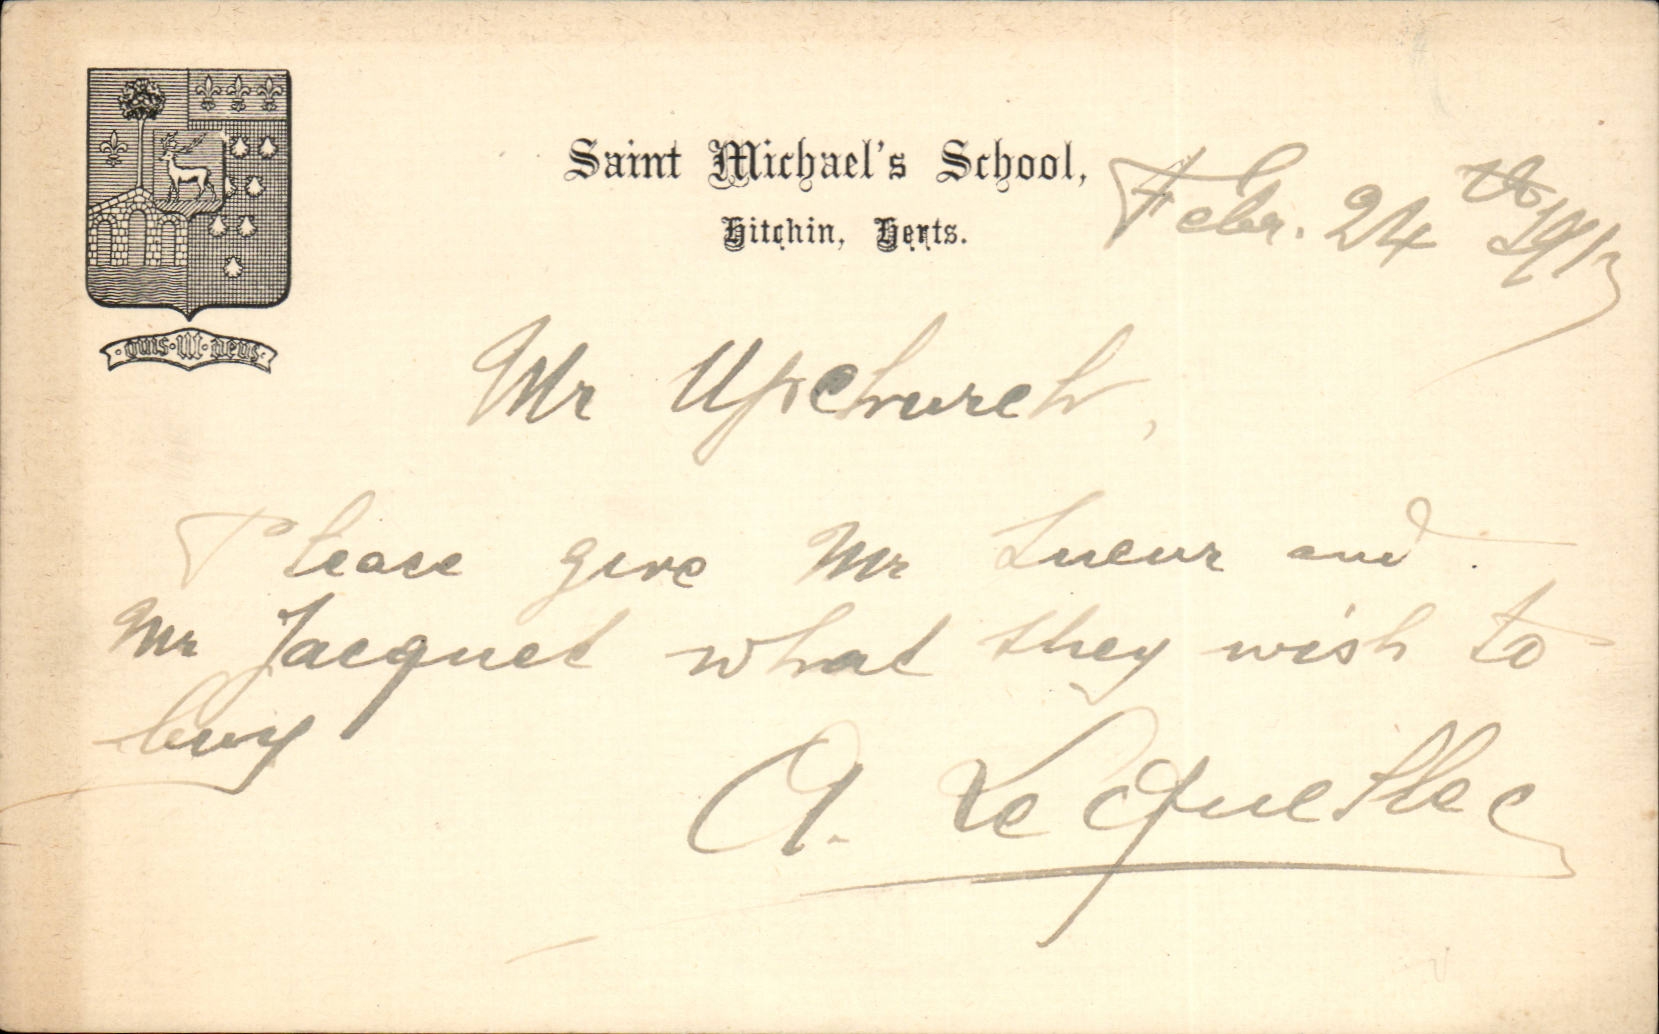 Saint Michael's School,
Hitchin, Herts.
Febr. 24th 1913
Mr Upchurch,
Please give Mr Lueur and
Mr Jacquet what they wish to
buy
A. Le Quellec